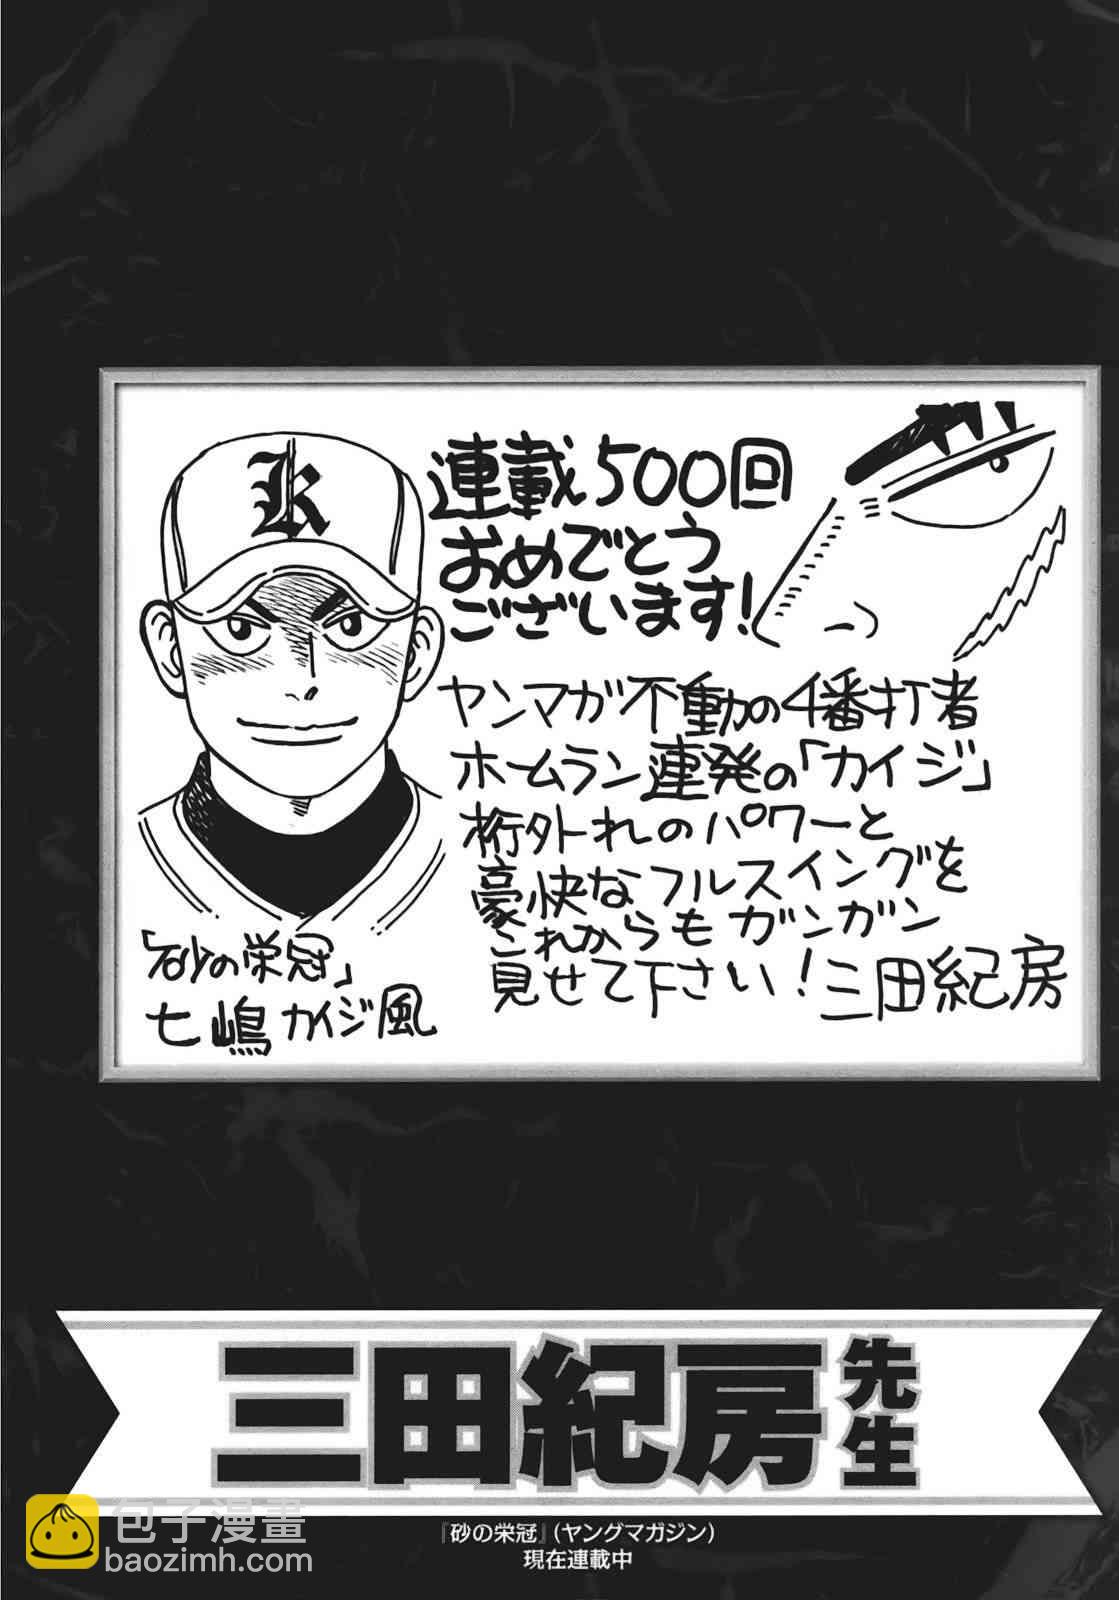 K
連載500回
おめでとう
ございます!
ヤンマガ不動の4番打者
ホームラン連発の「カイジ」
桁外れのパワーと
豪快なフルスイングを
これからもガンガン
見せて下さい!三田紀房
「砂の栄冠」
七嶋カイジ風
三田紀房先生
『砂の栄冠』(ヤングマガジン)
現在連載中
包子漫畫
baozimh.com